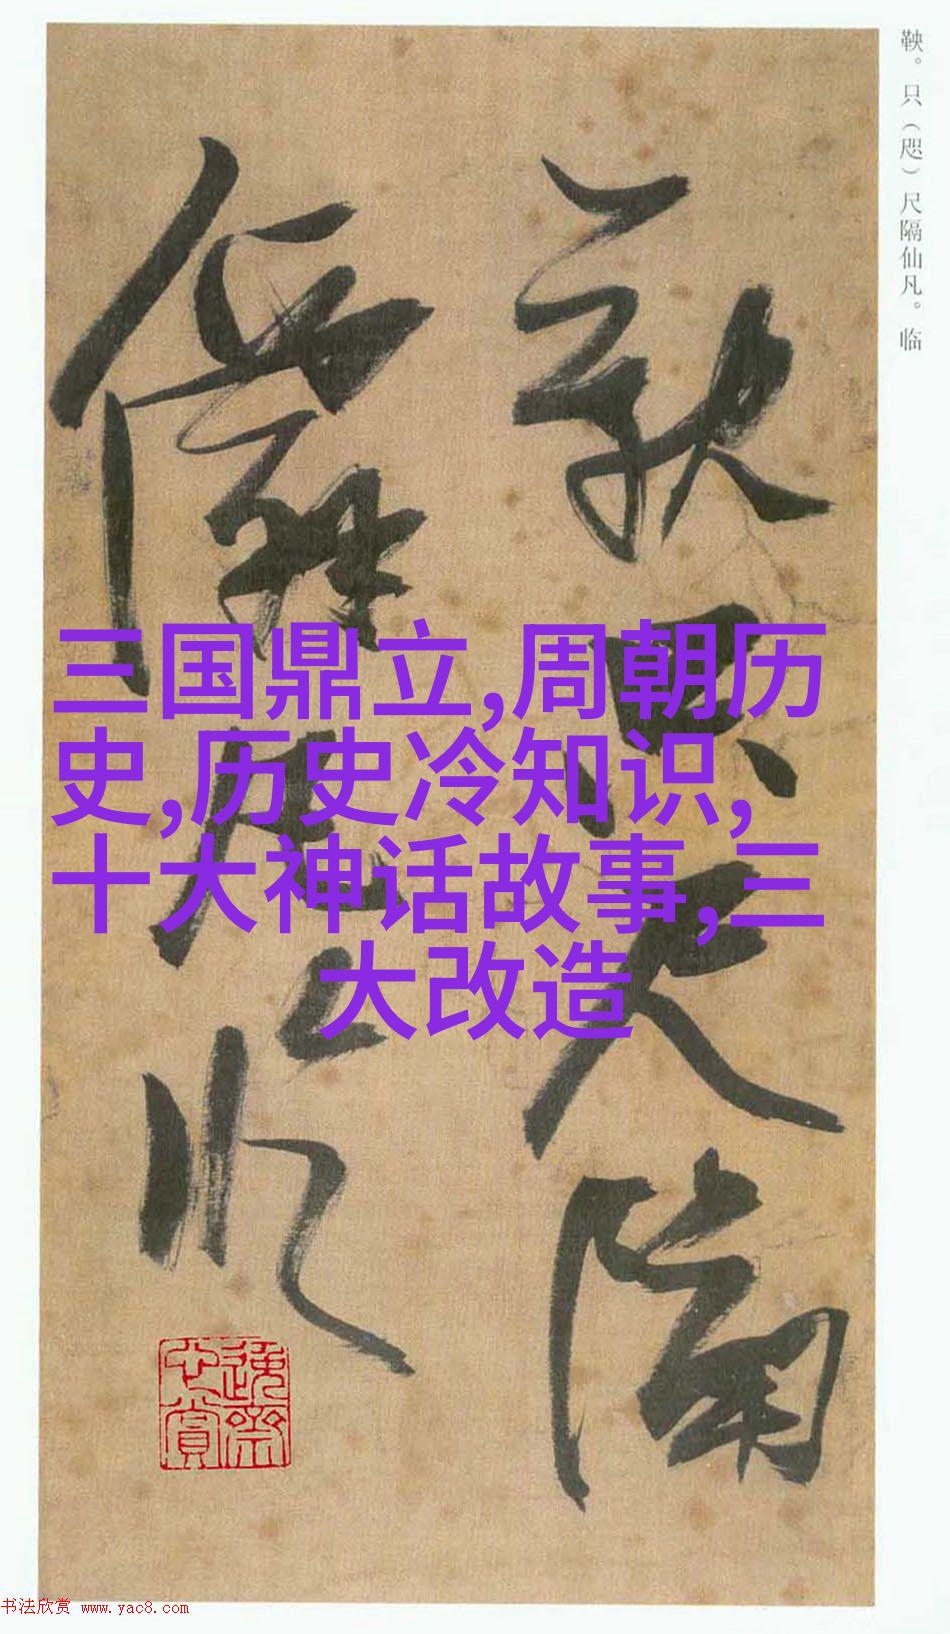 鞅。只（咫）尺隔仙凡。临
鞅只尺隔
僊凡临
三国鼎立,周朝历
史,历史冷知识,
十大神话故事,三
大改造
书法欣赏 www.yac8.com